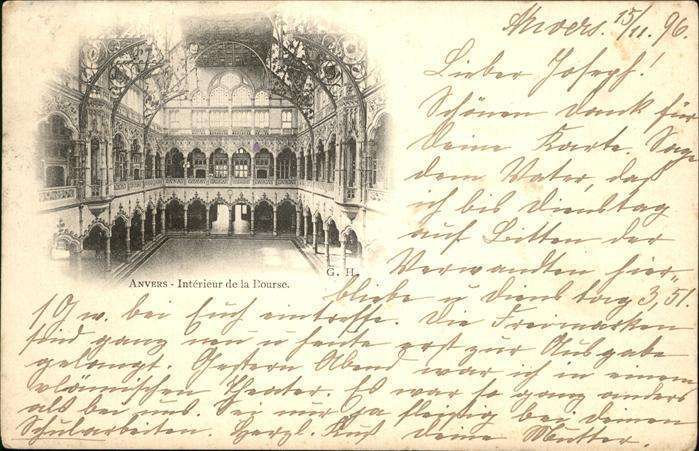 Anvers. 15/11. 96.
Lieber Joseph!
Schönen Dank für
Deine Karte. Sag
dem Vater, daß
ich bis Dienstag
auf Bitten der
Verwandten hier-
bliebe u Dienstag 3,51
G. H.
ANVERS - Intérieur de la Bourse.
w. bei Euch eintreffe. Die Freimarken
sind ganz neu u heute erst zur Ausgabe
gelangt. Gestern Abend war ich in einem
vlämischen Theater. Es war so ganz anders
als bei uns. Sei nur ja fleißig bei deinen
Schularbeiten. Herzl. Kuß Deine Mutter.